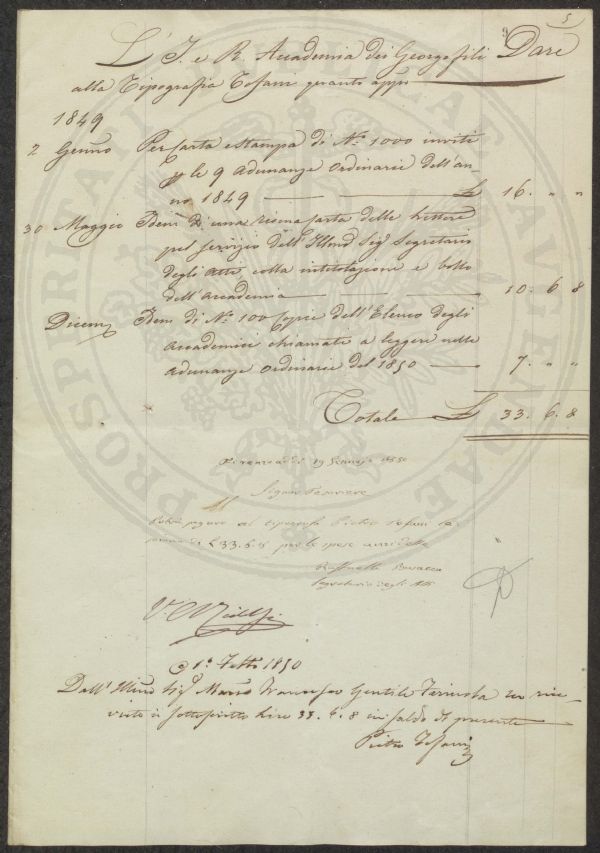 5
L'I. e R. Accademia dei Georgofili Dare
alla Tipografia Tofani quanto app.
1849
2 Genno Per carta e stampa di No. 1000 inviti
p le 9 adunanze ordinarie dell'an-
no 1849 £ 16. " "
30 Maggio Idem di una risma carta delle lettere
pel servizio dell'Illmo Sigr Segretario
degli Atti, colla intitolazione e bollo
dell'Accademia 10. 6. 8
Dicem Idem di No. 100 Copie dell'Elenco degli
Accademici chiamati a leggere nelle
adunanze ordinarie del 1850 7. " "
Totale £ 33. 6. 8
Firenze 19 Gennajo 1850
Signor Tesoriere
pagare al tipografo Pietro Tofani la
somma di £ 33.6.8 per le spese suddette
Raffaello
Segretario degli Atti
V
1o. Febb. 1850
Dall'Illmo Sigr Marco Francesco Gentile ho rice-
vuto io sottoscritto Lire 33. 6. 8 in saldo del presente
Pietro Tofani
PROSPERITATI PUBLICAE AUGENDAE